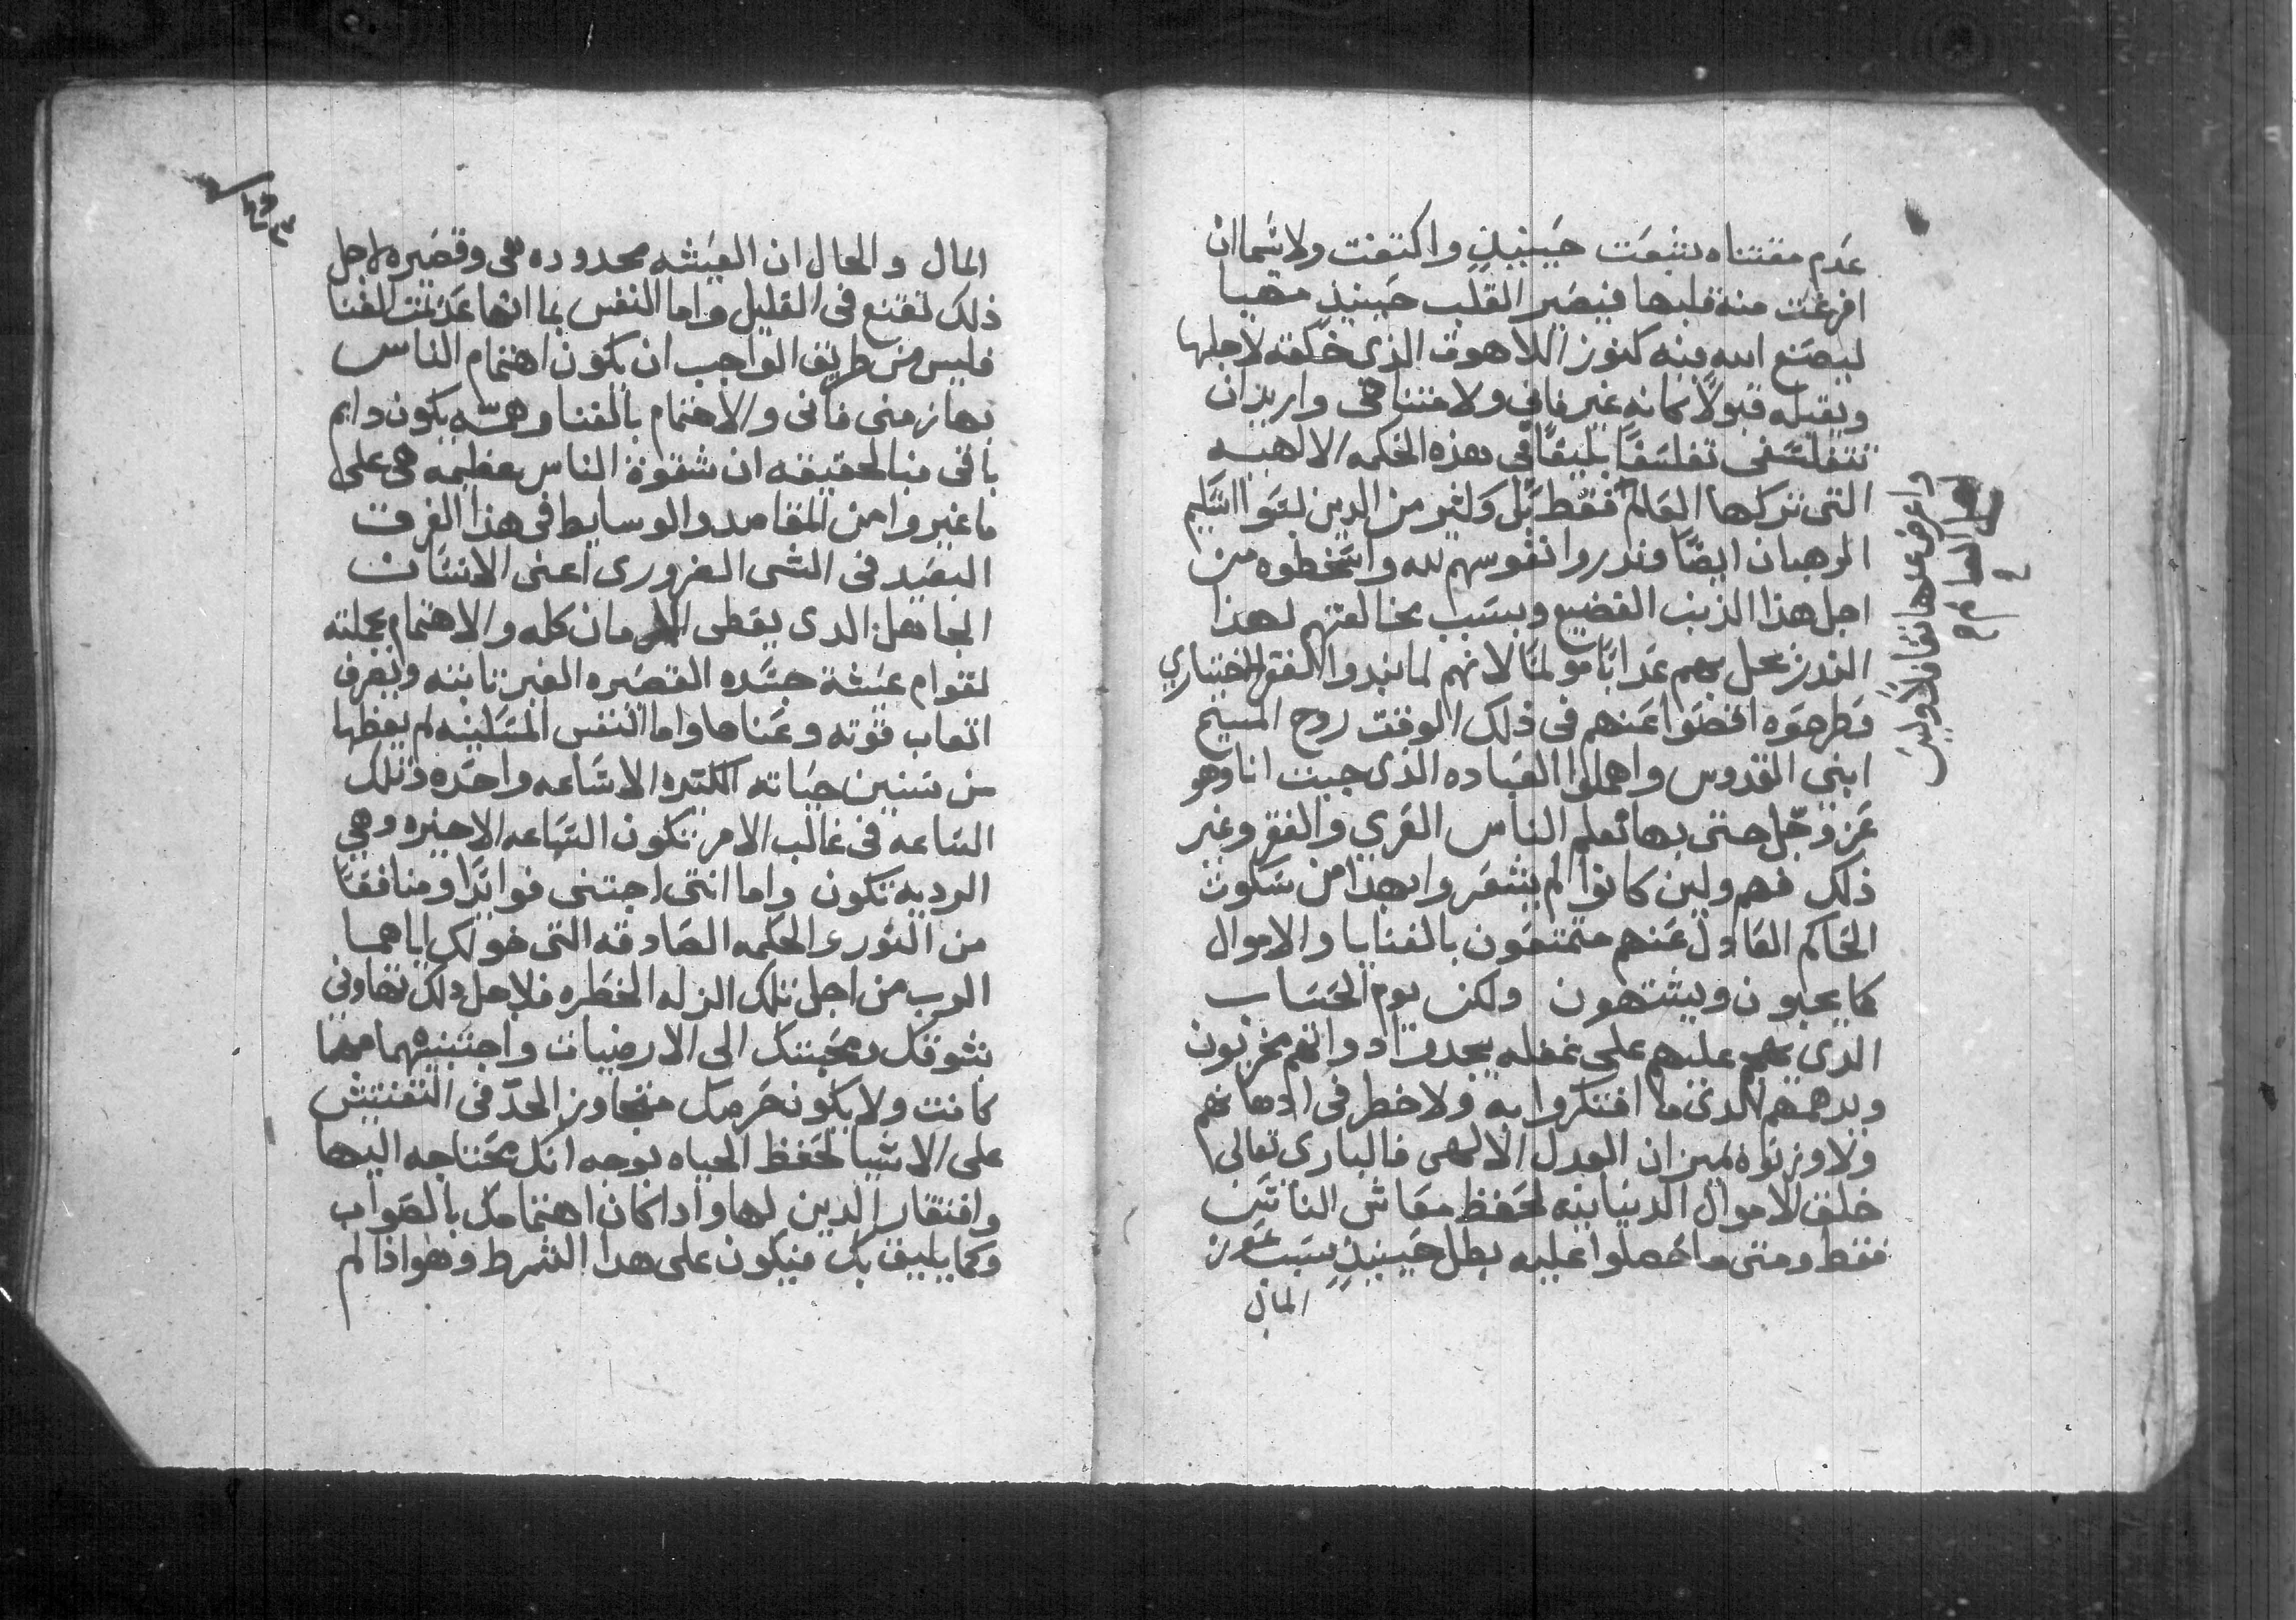 عدم مقتناه بشبعت حينيذٍ واكتفت ولاسيما ان
افرغت منه قلبها فيصير القلب حينيذٍ مهيا
ليصنع الله فيه كنوز اللاهوت الذى خلقه لاجلها
ويقبله قبولاً بما انه غير فانى ولا متناهى واريد ان
تتفلسفى تفلسفًا بليقًا فى هذه الحكمه الالهيه
التى تركها العالم فقط بل وكثير من الدين لبسوا اسكيم
الرهبان ايضًا وندروا نفوسهم لله واسخطوه من
اجل هذا الذنب الفضيع وبسبب مخالفتهم لهذا
الندر يحل بهم عدابًا مولمًا لانهم لما نبدوا الفقر الاختياري
وطرحوه اقصوا عنهم فى ذلك الوقت روح المسيح
ابنى القدوس واهملوا العباده الذى جيت انا وهو
عز وجل حتى بها نعلم الناس العرى والفقر وغير
ذلك فهم ولين كانوا لم يشعروا بهذا من سكوت
الحاكم العادل عنهم متمتعون بالغنايا والاموال
كما يحبون ويشتهون ولكن يوم الحساب
الدى يهجم عليهم على غفله يجدوا دواتهم مخزيون
وبدهمهم الدى ما افتكروا به ولا خطر فى ادهانهم
ولا وزنوه بميزان العدل الالهى فالبارى تعالى
خلق الاموال الدنيانيه لحفظ معاش الناس
فقط ومتى ما حصلوا عليه بطل حينيذٍ سبب عوز
المال
واعرض عنها تغافلاً وليس
اهل العالم
المال والحال ان العيشه محدوده هى وقصيره لاجل
ذلك تقنع فى القليل واما النفس بما انها عديمت الفنا
فليس من طريق الواجب ان يكون اهتمام الناس
بها زمنى فانى والاهتمام بالغنا وهمه يكون دايم
باقى فبالحقيقه ان شقوة الناس عظيمه هى على
ما غيروا من المقاصد والوسايط فى هذا الفرق
البعيد فى الشى الضرورى اعنى الانسان
الجاهل الدى يعطى الازمان كله والاهتمام بجملته
لقوام عيشة جسده القصيره الغير تابته ويصرف
اتعاب قوته وعناها واما النفس المسكينه لم يعطها
من سنين حياته الكتيره الا ساعه واحده وتلك
الساعه فى غالب الامر تكون الساعه الاخيره وهى
الرديه تكون واما انتى اجتنى فوايدًا ومنافعًا
من النور والحكمه الصادقه التى خولكى اياهما
الرب من اجل تلك الزله الخطره فلاجل ذلك تهاونى
بشوقك ومحبتك الى الارضيات واجتنبيهما مهما
كانت ولا يكون حرصك متجاوز الحد فى التفتيش
على الاشيا لحفظ الحياه بوجه انك محتاجه اليها
وافتقار الدين لها وادا كان اهتمامك بالصواب
وكما يليق بك فيكون على هدا الشرط وهو اذا لم